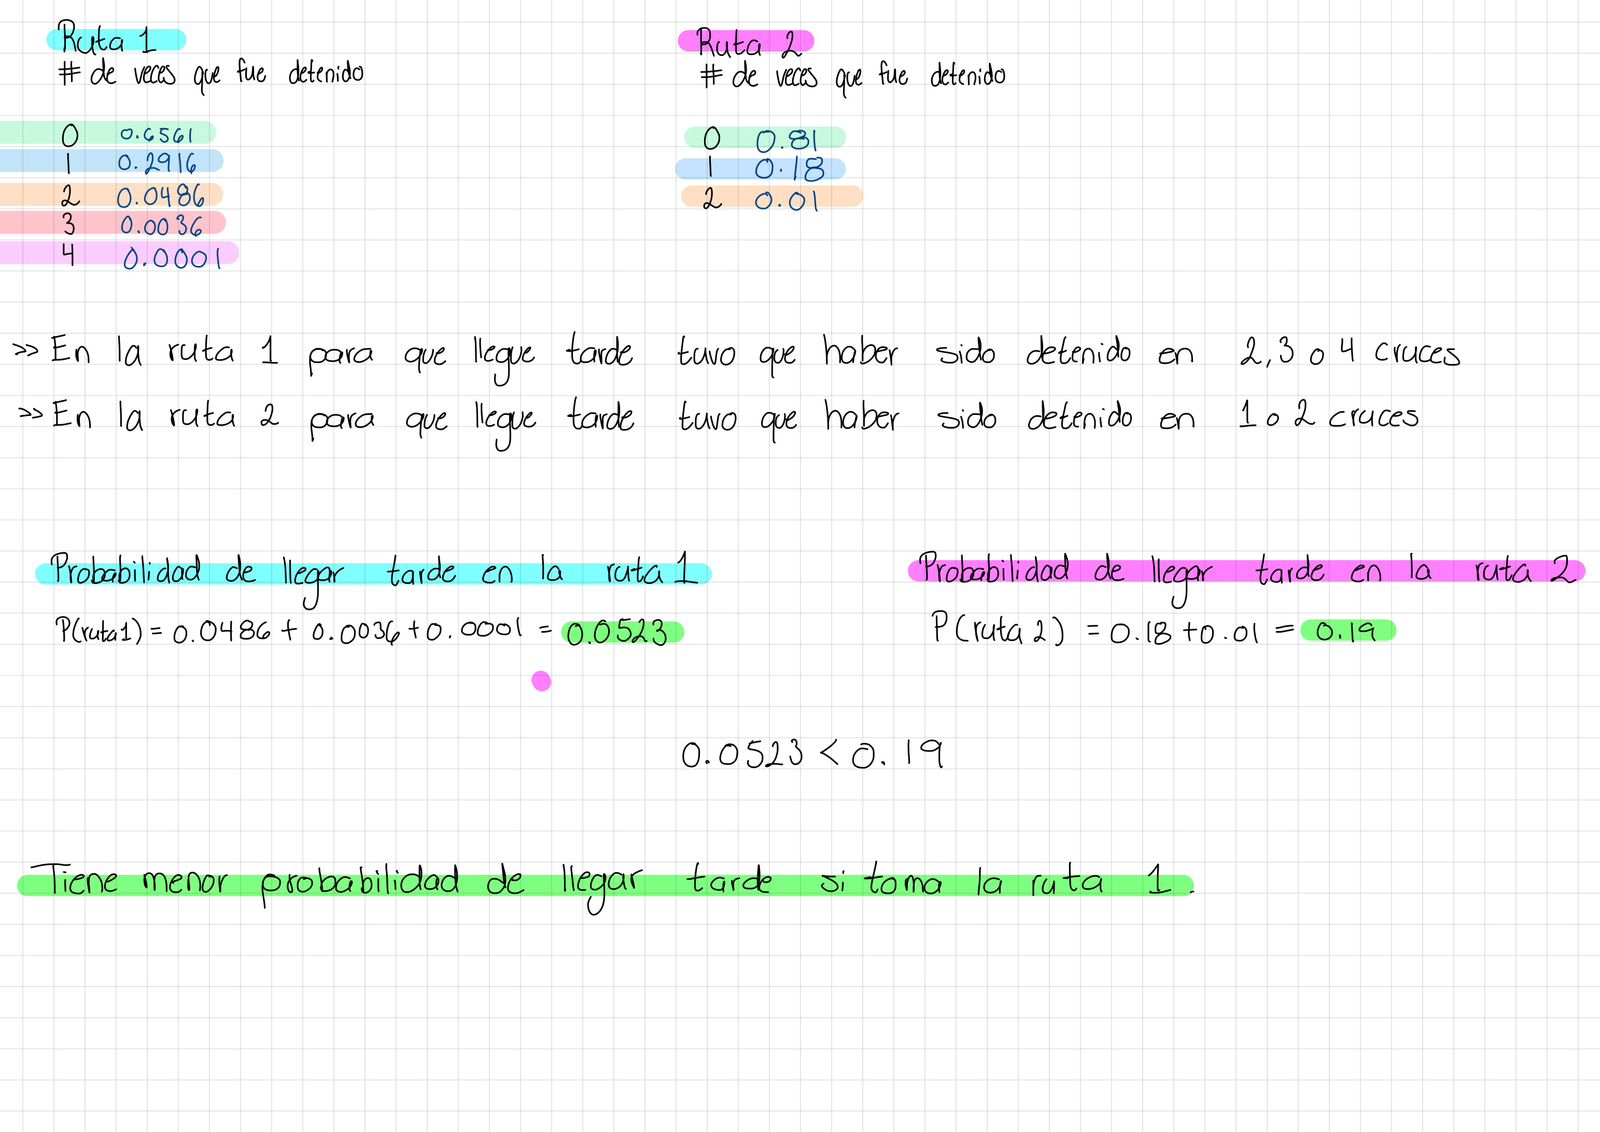 Ruta 1
# de veces que fue detenido
0 0.6561
1 0.2916
2 0.0486
3 0.0036
4 0.0001
Ruta 2
# de veces que fue detenido
0 0.81
1 0.18
2 0.01
>> En la ruta 1 para que llegue tarde tuvo que haber sido detenido en 2,3 o 4 cruces
>> En la ruta 2 para que llegue tarde tuvo que haber sido detenido en 1 o 2 cruces
Probabilidad de llegar tarde en la ruta 1
P(ruta1) = 0.0486 + 0.0036 + 0.0001 = 0.0523
Probabilidad de llegar tarde en la ruta 2
P(ruta 2) = 0.18 + 0.01 = 0.19
0.0523 < 0.19
Tiene menor probabilidad de llegar tarde si toma la ruta 1.